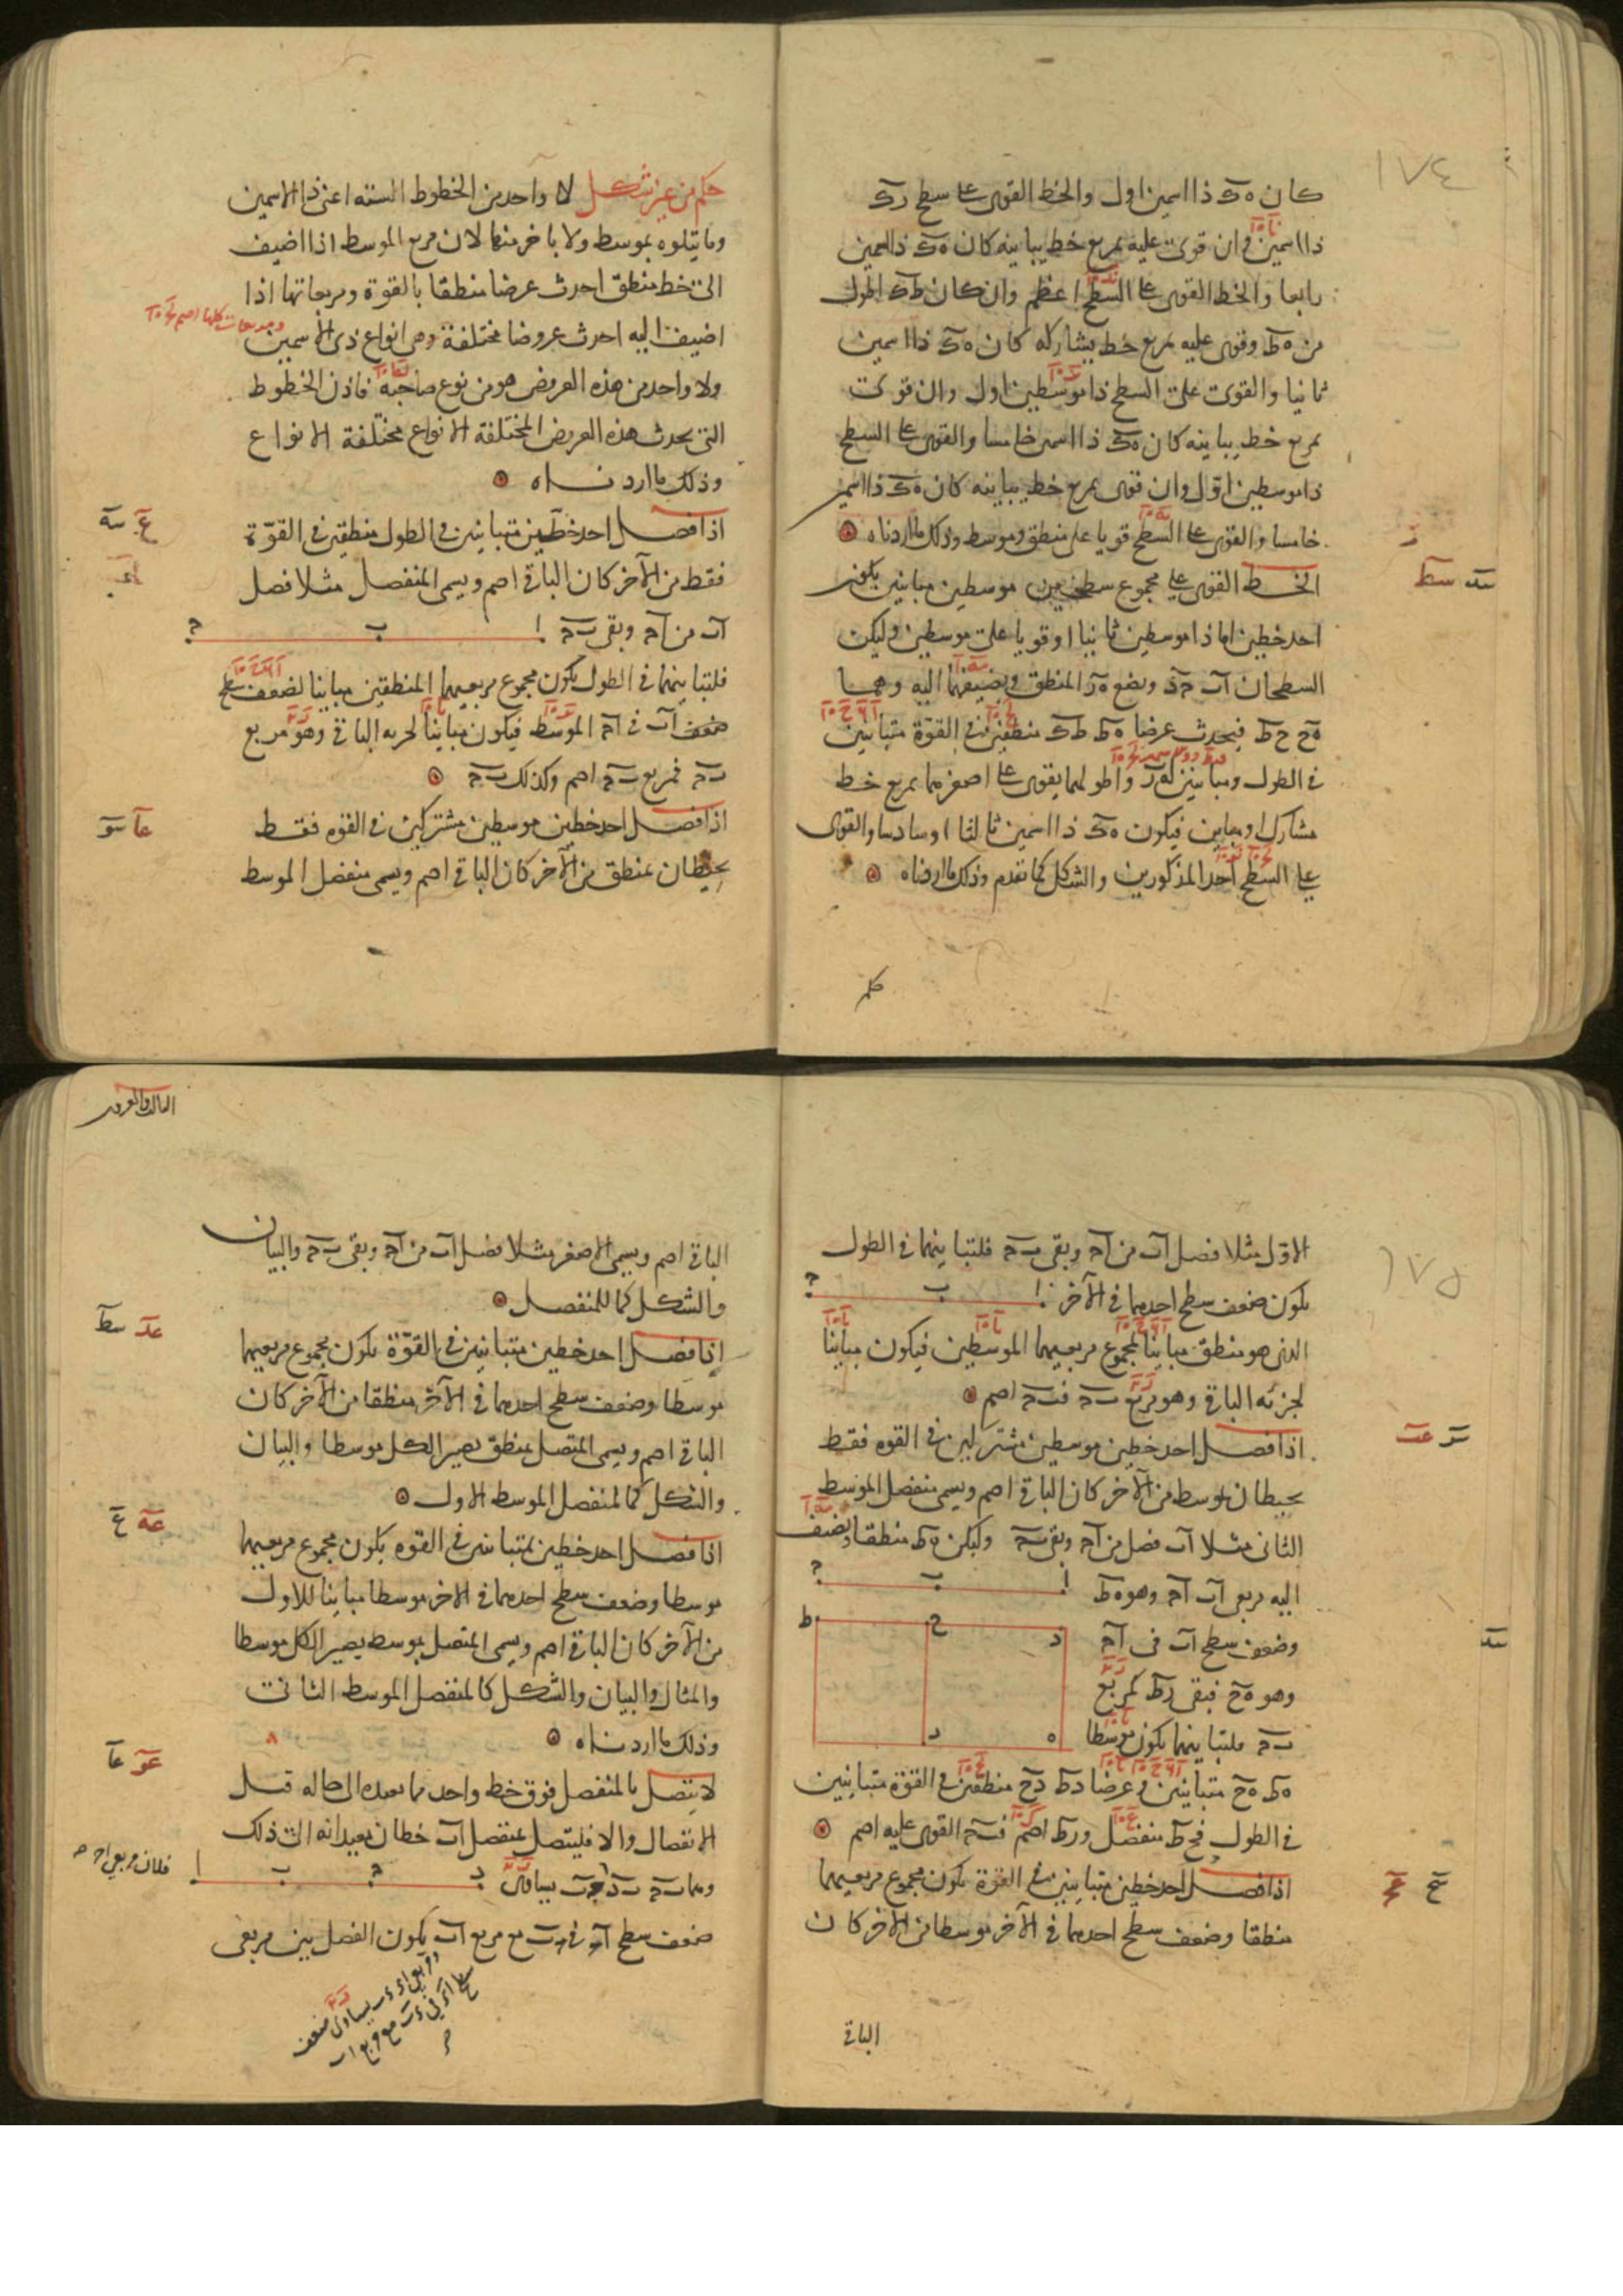 ١٧٤
كان هك ذا اسمين اول والخط القوى على سطح رك
ذا اسمين وان قوى عليه بمربع خط يباينه كان هك ذا اسمين
رابعا والخط القوى على السطح اعظم وان كان طك اطول
من هط وقوى عليه بمربع خط يشاركه كان هك ذا اسمين
ثانيا والقوى على السطح ذا موسطين اول وان قوى
بمربع خط يباينه كان هك ذا اسمين خامسا والقوى على السطح
ذا موسطين اول وان قوى بمربع خط يباينه كان هك ذا اسمين
خامسا والقوى على السطح قويا على منطق وموسط وذلك ما اردناه
سد سط
الخط القوى على مجموع سطحين موسطين متباينين يكون
احد خطين اما ذا موسطين ثانيا او قويا على موسطين وليكن
السطحان اب حد ونضع هر المنطق ونضيفهما اليه وهما
هح حط فيحدث عرضا هط طك منطقين في القوة متباينين
في الطول ومباينين لهر واطولهما يقوى على اصغرهما بمربع خط
مشارك او مباين فيكون هك ذا اسمين ثالثا او سادسا والقوى
على السطح احد المذكورين والشكل كما تقدم وذلك ما اردناه
حكم
حكم من غير شكل لا واحد من الخطوط الستة اعنى ذا الاسمين
وما يتلوه بموسط ولا باخر منها لان مربع الموسط اذا اضيف
الى خط منطق احدث عرضا منطقا بالقوة ومربعاتها اذا
اضيفت اليه احدث عروضا مختلفة وهي انواع ذى الاسمين
ولا واحد من هذه العروض هو من نوع صاحبه فاذن الخطوط
التى يحدث هذه العروض المختلفة الانواع مختلفة الانواع
وذلك ما اردناه
ع سه
اذا فصل احد خطين متباينين في الطول منطقين في القوة
فقط من الآخر كان الباقي اصم ويسمى المنفصل مثلا فصل
اب من اح وبقى بح
ا ب ح
فلتباينهما في الطول يكون مجموع مربعيهما المنطقين مباينا لضعف سطح
ضعف اب في اح الموسط فيكون مباينا لجزئه الباقي وهو مربع
بح فمربع بح اصم وكذلك بح
عا سو
اذا فصل احد خطين موسطين مشتركين في القوه فقط
يحيطان بمنطق من الآخر كان الباقي اصم ويسمى منفصل الموسط
١٧٥
الاول مثلا فصل اب من اح وبقى بح فلتباينهما في الطول
يكون ضعف سطح احدهما في الآخر
ا ب ح
الذى هو منطق مباينا لمجموع مربعيهما الموسطين فيكون مباينا
لجزئه الباقي وهو مربع بح فبح اصم
سر عب
اذا فصل احد خطين موسطين مشتركين في القوه فقط
يحيطان بموسط من الآخر كان الباقي اصم ويسمى منفصل الموسط
الثانى مثلا اب فصل من اح وبقى بح وليكن هط منطقا ونضيف
اليه مربعى اب اح وهو هط
ا ب ح
وضعف سطح اب فى اح
وهو هح فبقى رط كمربع
بح فلتباينهما يكون موسطا
د ح ط
ه ر
هط هح متباينين وعرضا دط دح منطقين في القوة متباينين
في الطول فحط منفصل ورط اصم فبح القوى عليه اصم
سح عج
اذا فصل احد خطين متباينين في القوة يكون مجموع مربعيهما
منطقا وضعف سطح احدهما في الآخر موسطا من الآخر كان
الباقي
الباقي اصم ويسمى الاصغر مثلا فصل اب من اح وبقى بح والبيان
والشكل كما للمنفصل
عد سط
اذا فصل احد خطين متباينين في القوة يكون مجموع مربعيهما
موسطا وضعف سطح احدهما في الآخر منطقا من الآخر كان
الباقي اصم ويسمى المتصل بمنطق يصير الكل موسطا والبيان
والشكل كما لمنفصل الموسط الاول
عه ع
اذا فصل احد خطين متباينين في القوه يكون مجموع مربعيهما
موسطا وضعف سطح احدهما في الاخر موسطا مباينا للاول
من الآخر كان الباقي اصم ويسمى المتصل بموسط يصير الكل موسطا
والمثال والبيان والشكل كالمنفصل الموسط الثانى
وذلك ما اردناه
عو عا
لا يتصل بالمنفصل فوق خط واحد مما يعيده الى حاله قبل
الانفصال والا فليتصل بمنفصل اب خطان يعيدانه الى ذلك
وهما بح بد
ا ب ح د
ضعف سطح اح في حب مع مربع اب يكون الفصل بين مربعى